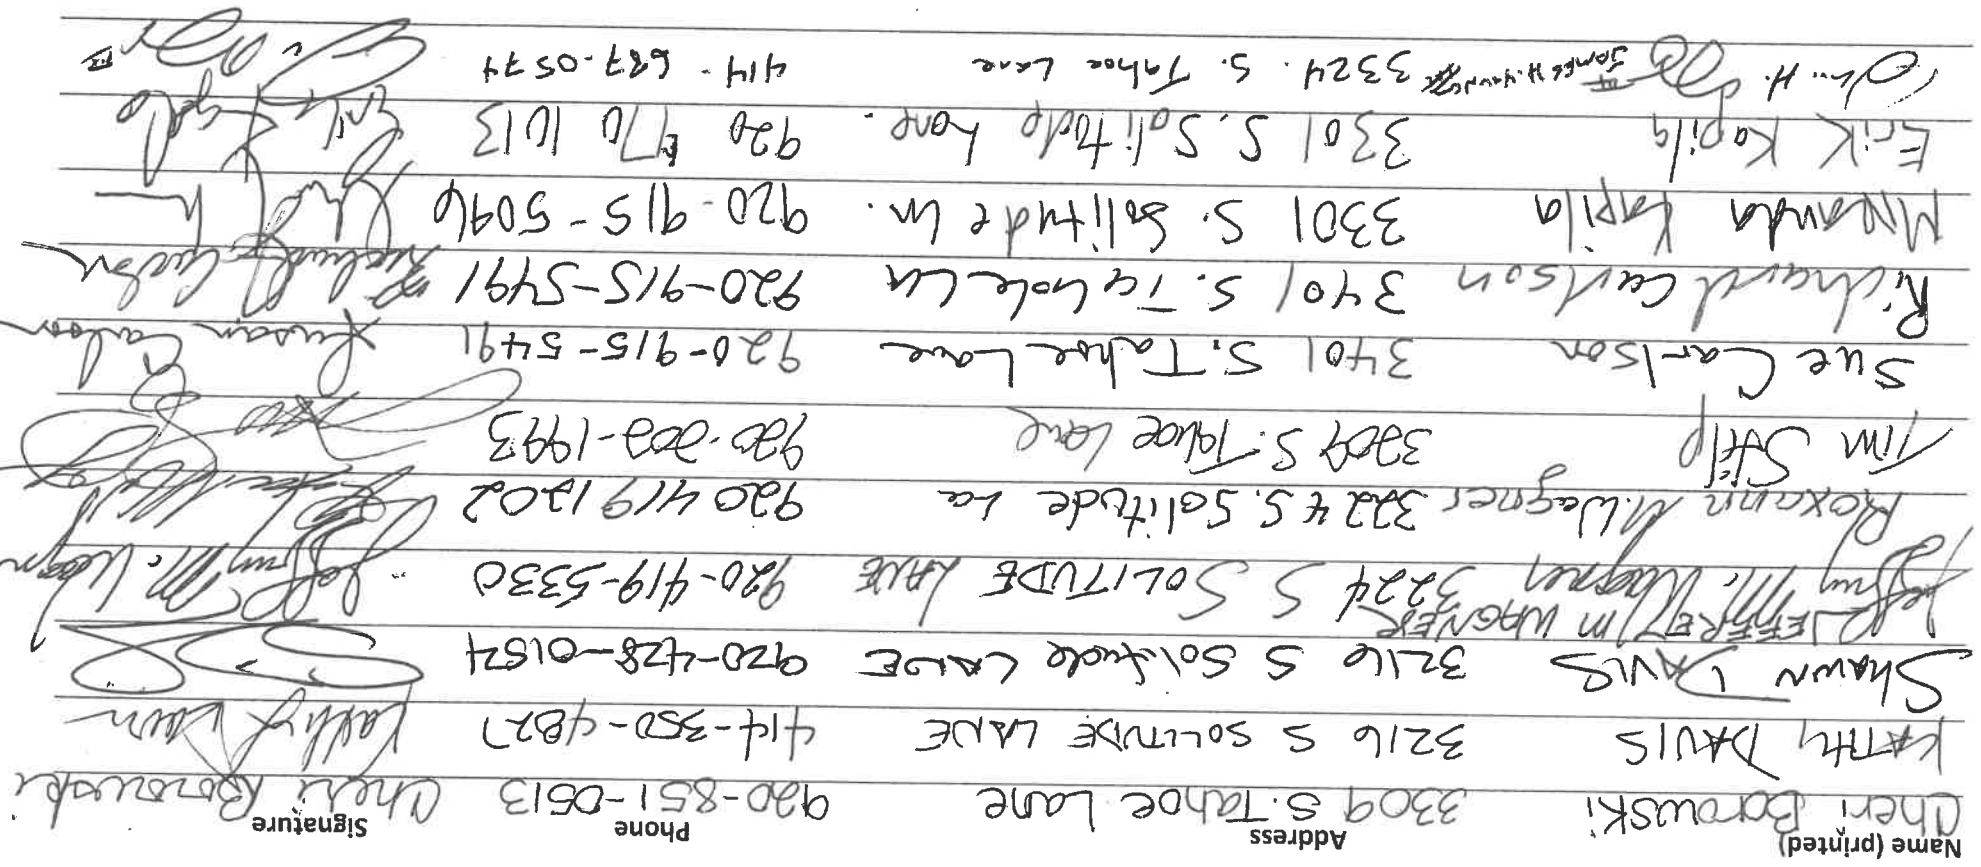 Name (printed) Address Phone Signature
Cheri Borowski 3309 S. Tahoe Lane 920-851-0513 Cheri Borowski
KATHY DAVIS 3216 S SOLITUDE LANE 414-350-4827
Shawn DAVIS 3216 S Solitude LANE 920-428-0154
JEFFREY M WAGNER
Jeffrey M. Wagner 3224 S SOLITUDE LANE 920-419-5330 Jeffrey M. Wagner
Roxann M. Wagner 3224 S. Solitude La 920 419 1202
Tim Stelp 3209 S. Tahoe Lane 920-202-1993
Sue Carlson 3401 S. Tahoe Lane 920-915-5491 Susan Carlson
Richard Carlson 3401 S. Tahoe Ln 920-915-5491 Richard Carlson
Miranda Kapila 3301 S. Solitude Ln. 920-915-5096
Erik Kapila 3301 S. Solitude Lane. 920 470 1013 Erik Kapila
James H. III 3324 S. Tahoe Lane 414-687-0574 III